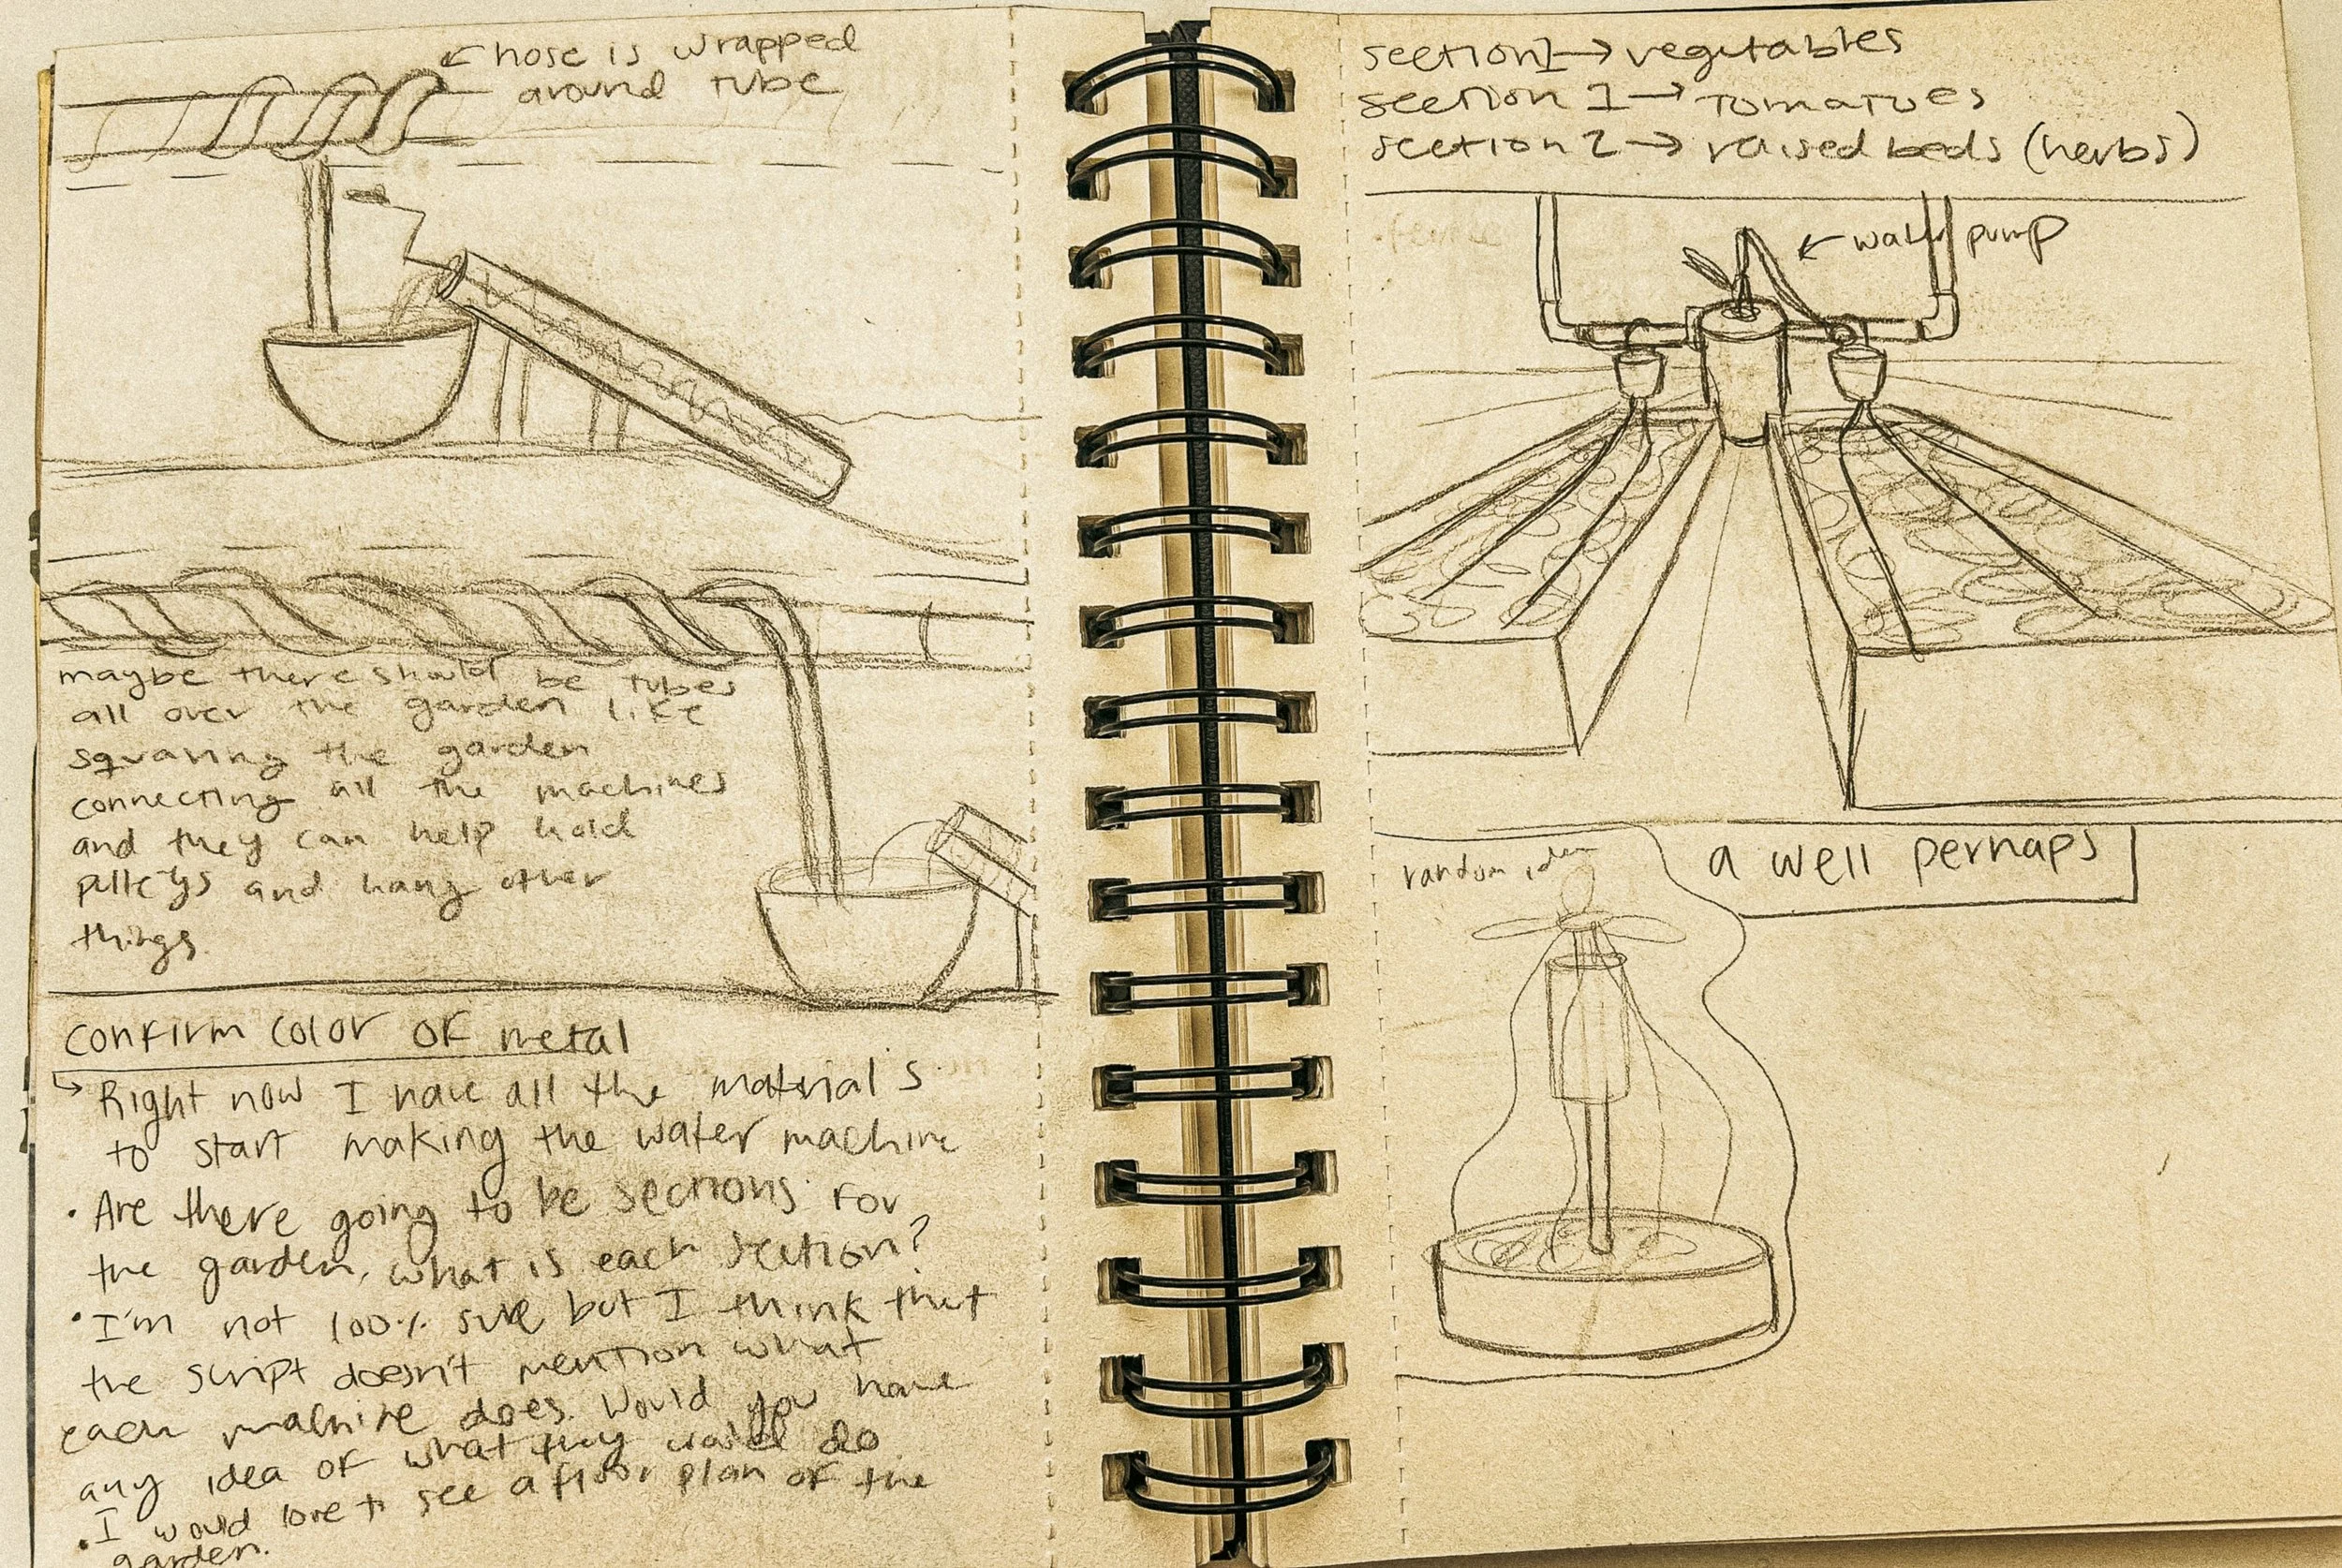 hose is wrapped
around tube
maybe there should be tubes
all over the garden like
squaring the garden
connecting all the machines
and they can help hold
and hang other
things.
confirm color of metal
Right now I have all the materials
to start making the water machine
• Are there going to be sections for
the garden, what is each section?
• I'm not 100% sure but I think that
the script doesn't mention what
each machine does. Would you have
any idea of what they would do
• I would love to see a floor plan of the
garden.
section 1 → vegetables
section 1 → tomatoes
section 2 → raised beds (herbs)
water pump
random idea
a well perhaps